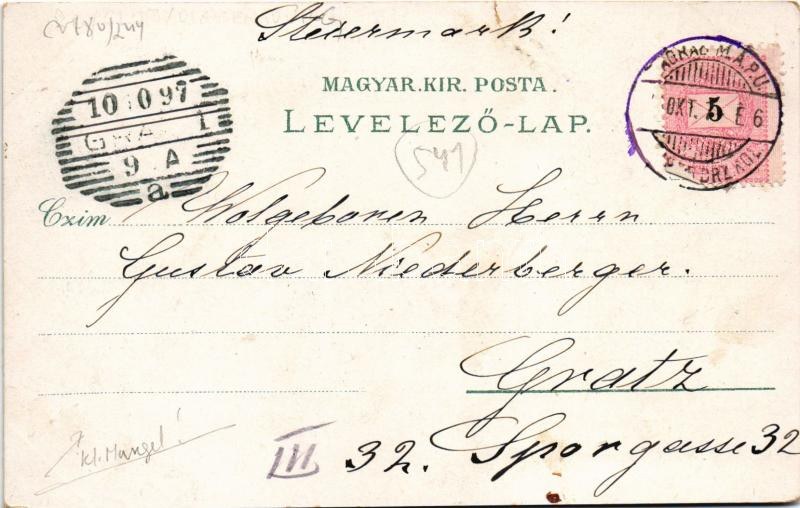 Steiermark!
MAGYAR. KIR. POSTA.
LEVELEZŐ-LAP.
10 10 97
GRAZ 1
9 A
a
ZÁGRÁB M.Á.P.U.
OKT. E 6
5
541
Czim Wolgeboren Herrn
Gustav Niederberger.
Gratz
III 32. Sporgasse 32
kl. Mangel!